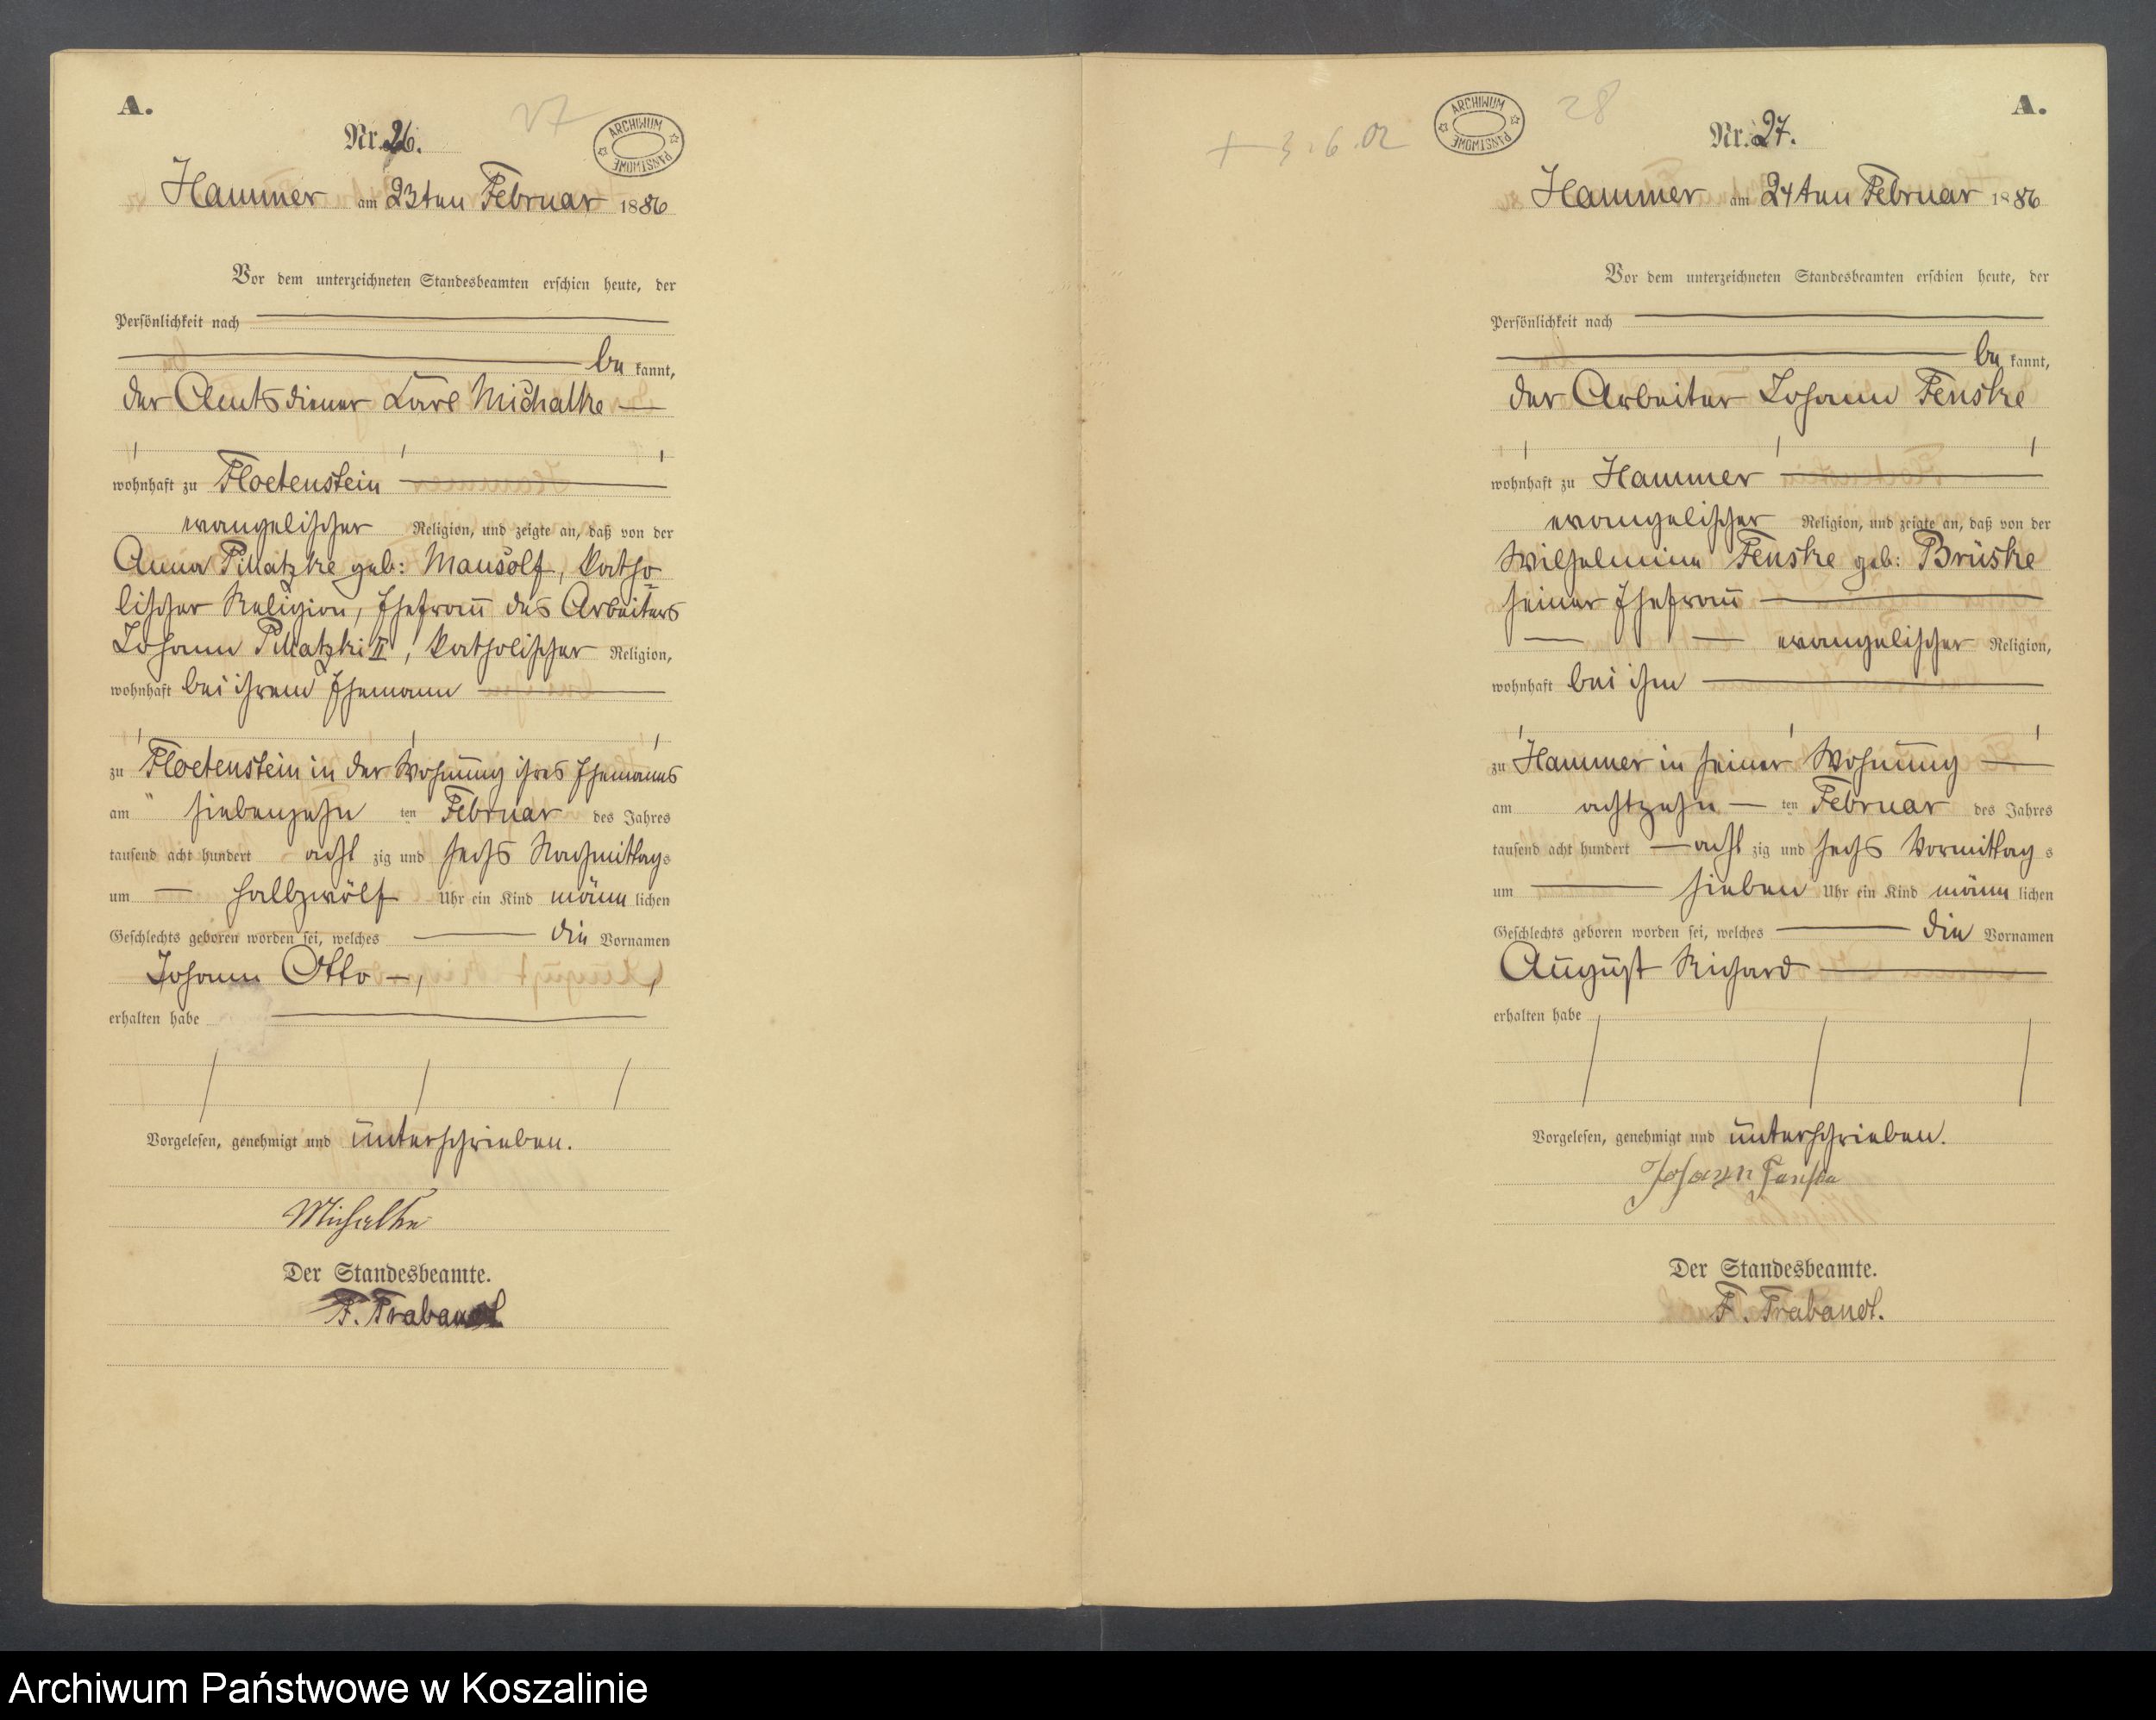 A.
27
Nr. 26.
ARCHIWUM PAŃSTWOWE
Hammer am 23ten Februar 1886
Vor dem unterzeichneten Standesbeamten erschien heute, der
Persönlichkeit nach
be kannt,
der Amtsdiener Karl Michalke
wohnhaft zu Floetenstein
evangelischer Religion, und zeigte an, daß von der
Anna geb: Mausolf, katho
lischer Religion, Ehefrau des Arbeiters
Johann II, katholischer Religion,
wohnhaft bei ihrem Ehemann
zu Floetenstein in der Wohnung ihres Ehemanns
am siebenzehn ten Februar des Jahres
tausend acht hundert acht zig und sechs Nachmittags
um halbzwölf Uhr ein Kind männ lichen
Geschlechts geboren worden sei, welches die Vornamen
Johann Otto,
erhalten habe
Vorgelesen, genehmigt und unterschrieben.
Michalke
Der Standesbeamte.
F. Trabandt.
A.
+ 3.6.02
ARCHIWUM PAŃSTWOWE
28
Nr. 27.
Hammer am 24ten Februar 1886
Vor dem unterzeichneten Standesbeamten erschien heute, der
Persönlichkeit nach
be kannt,
der Arbeiter Johann Fenske
wohnhaft zu Hammer
evangelischer Religion, und zeigte an, daß von der
Wilhelmine Fenske geb: Brüske
seiner Ehefrau
evangelischer Religion,
wohnhaft bei ihm
zu Hammer in seiner Wohnung
am achtzehn ten Februar des Jahres
tausend acht hundert acht zig und sechs Vormittag s
um sieben Uhr ein Kind männ lichen
Geschlechts geboren worden sei, welches die Vornamen
August Richard
erhalten habe
Vorgelesen, genehmigt und unterschrieben.
Johann Fenske
Der Standesbeamte.
F. Trabandt.
Archiwum Państwowe w Koszalinie